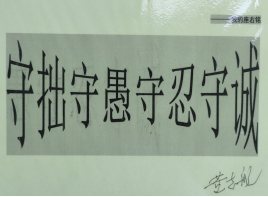 ——我的座右铭
守拙守愚守忍守诚